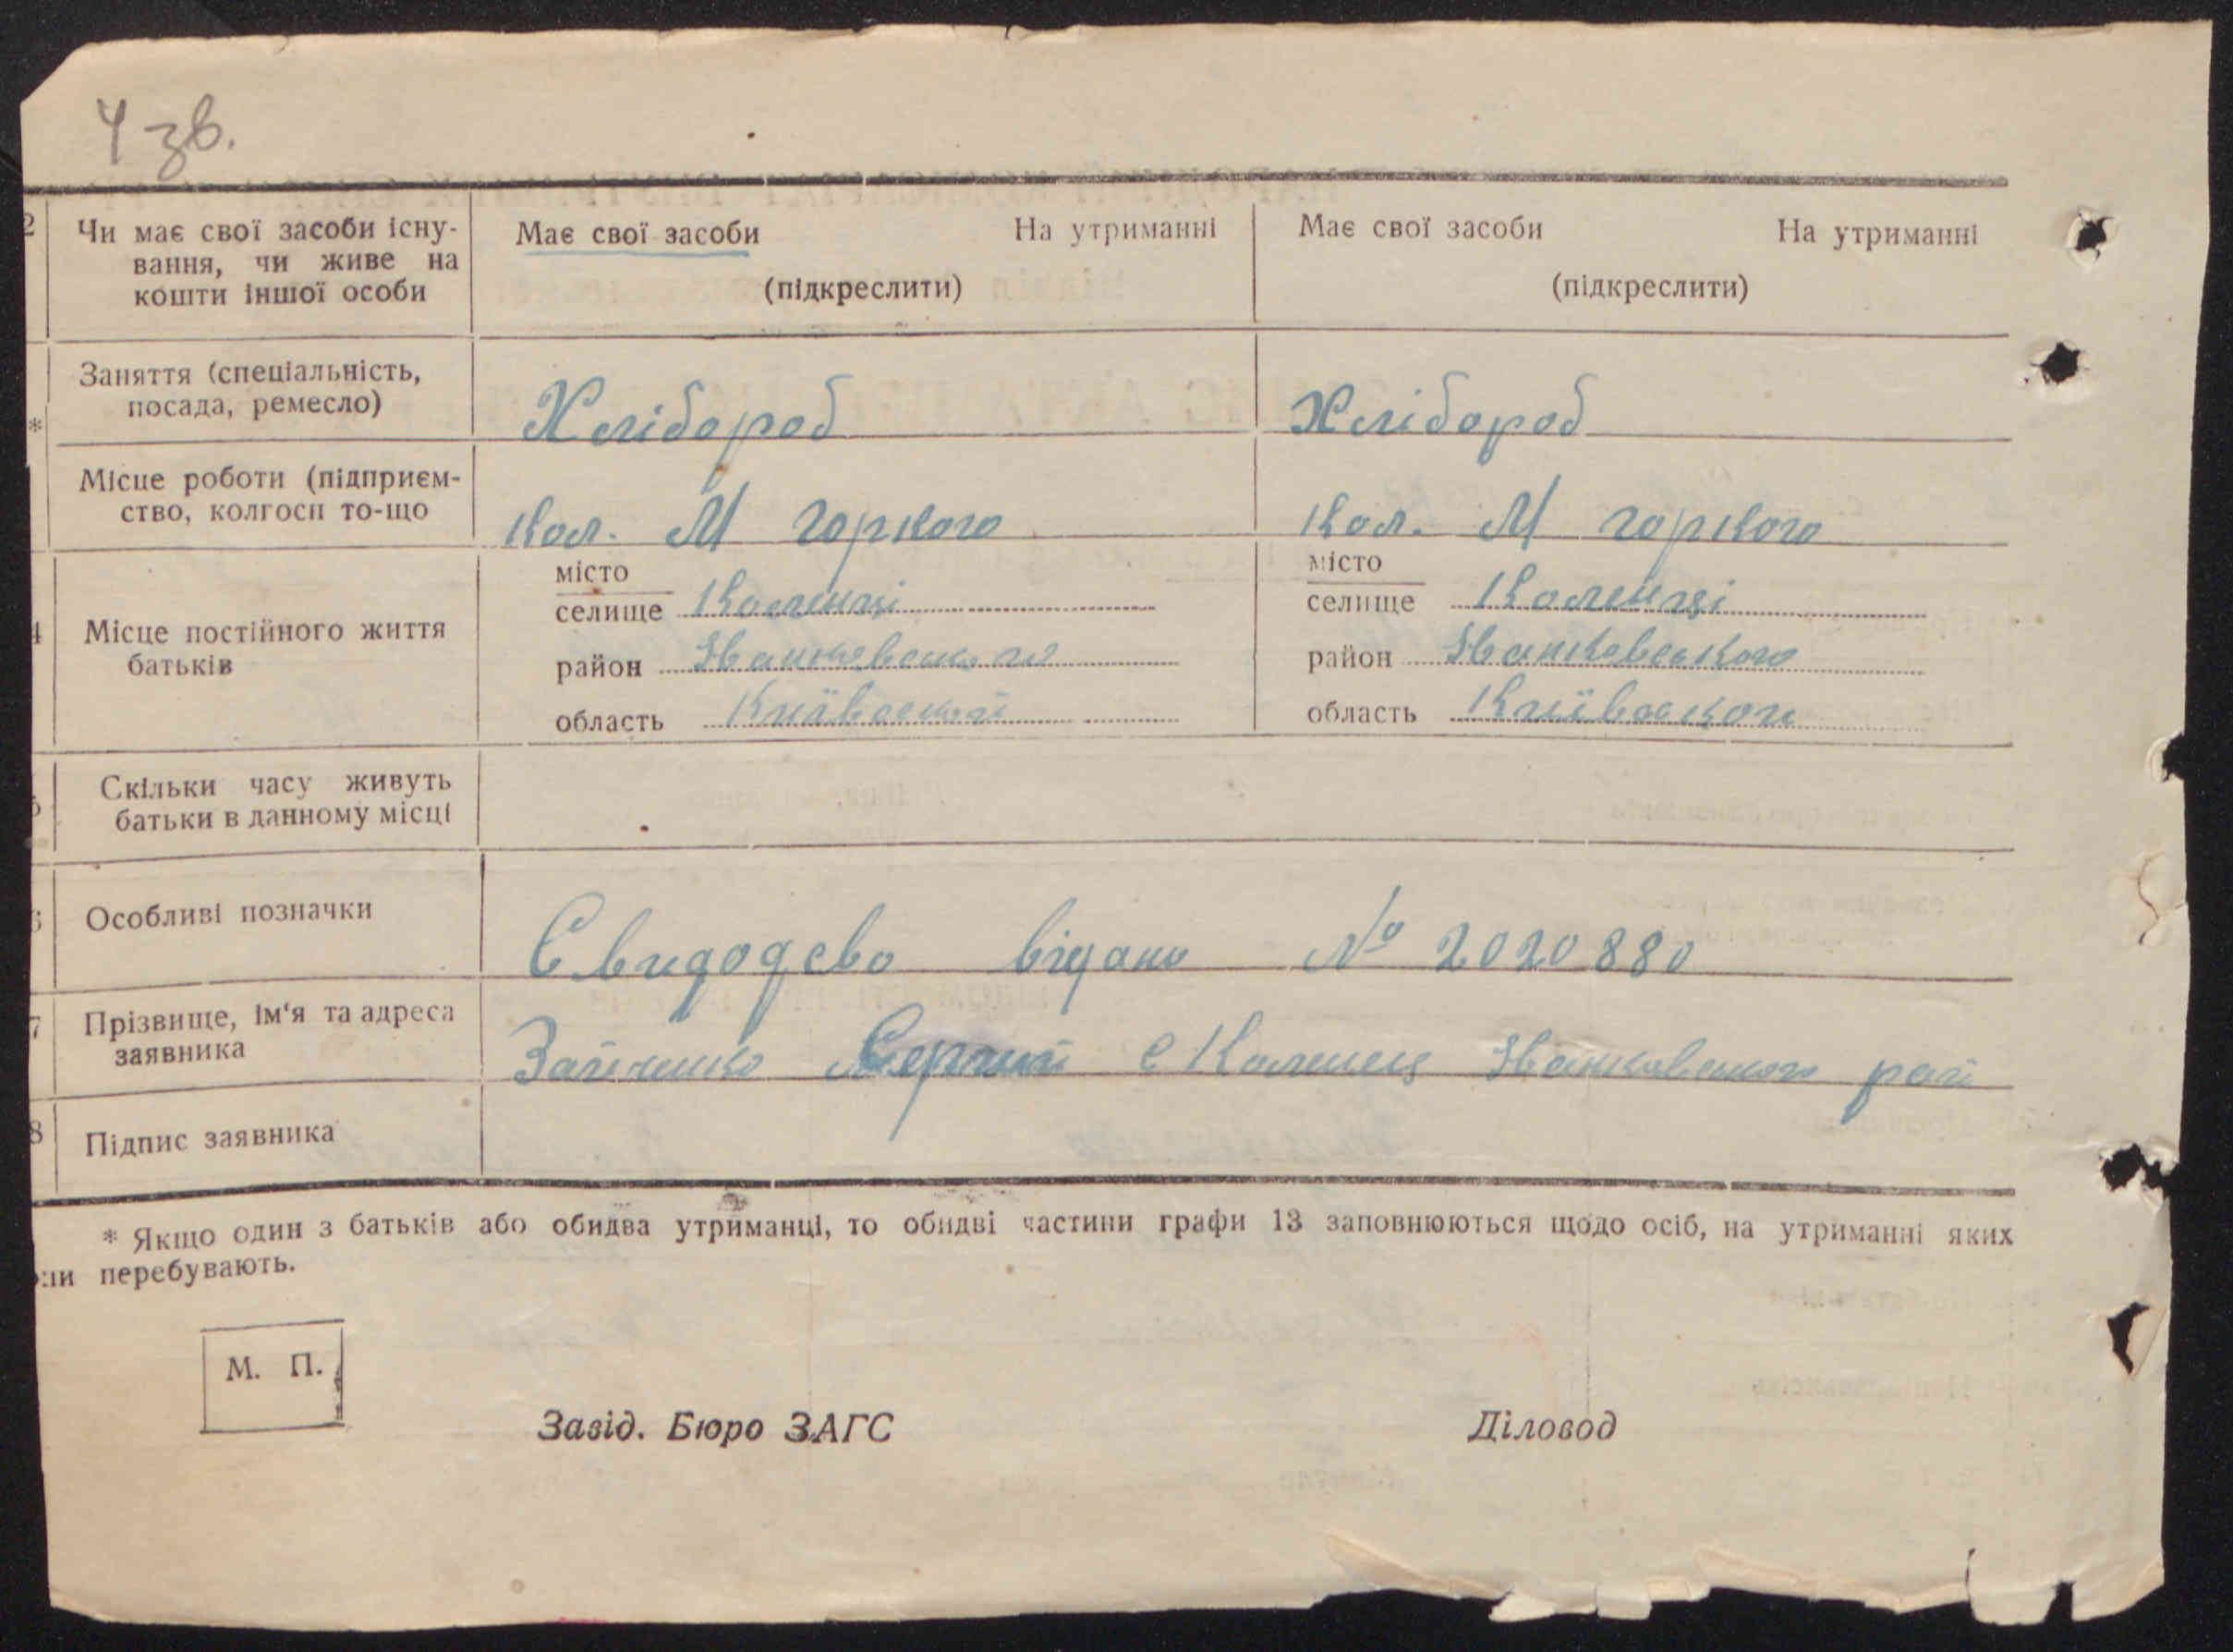 4 зв.
2 Чи має свої засоби існу-
вання, чи живе на
кошти іншої особи
Має свої засоби На утриманні
(підкреслити)
Має свої засоби На утриманні
(підкреслити)
Заняття (спеціальність,
посада, ремесло)
*
Хлібороб
Хлібороб
Місце роботи (підприєм-
ство, колгосп то-що
Кол. М горкого
Кол. М горкого
4 Місце постійного життя
батьків
місто
селище Коленці
район Іванковського
область Київської
місто
селище Коленці
район Іванковського
область Київської
5 Скільки часу живуть
батьки в данному місці
6 Особливі позначки
Свидодєво відано № 2020880
7 Прізвище, ім'я та адреса
заявника
Зайченко Сергий с Коленец Іванковского рай
8 Підпис заявника
* Якщо один з батьків або обидва утриманці, то обидві частини графи 13 заповнюються щодо осіб, на утриманні яких
они перебувають.
М. П.
Завід. Бюро ЗАГС Діловод